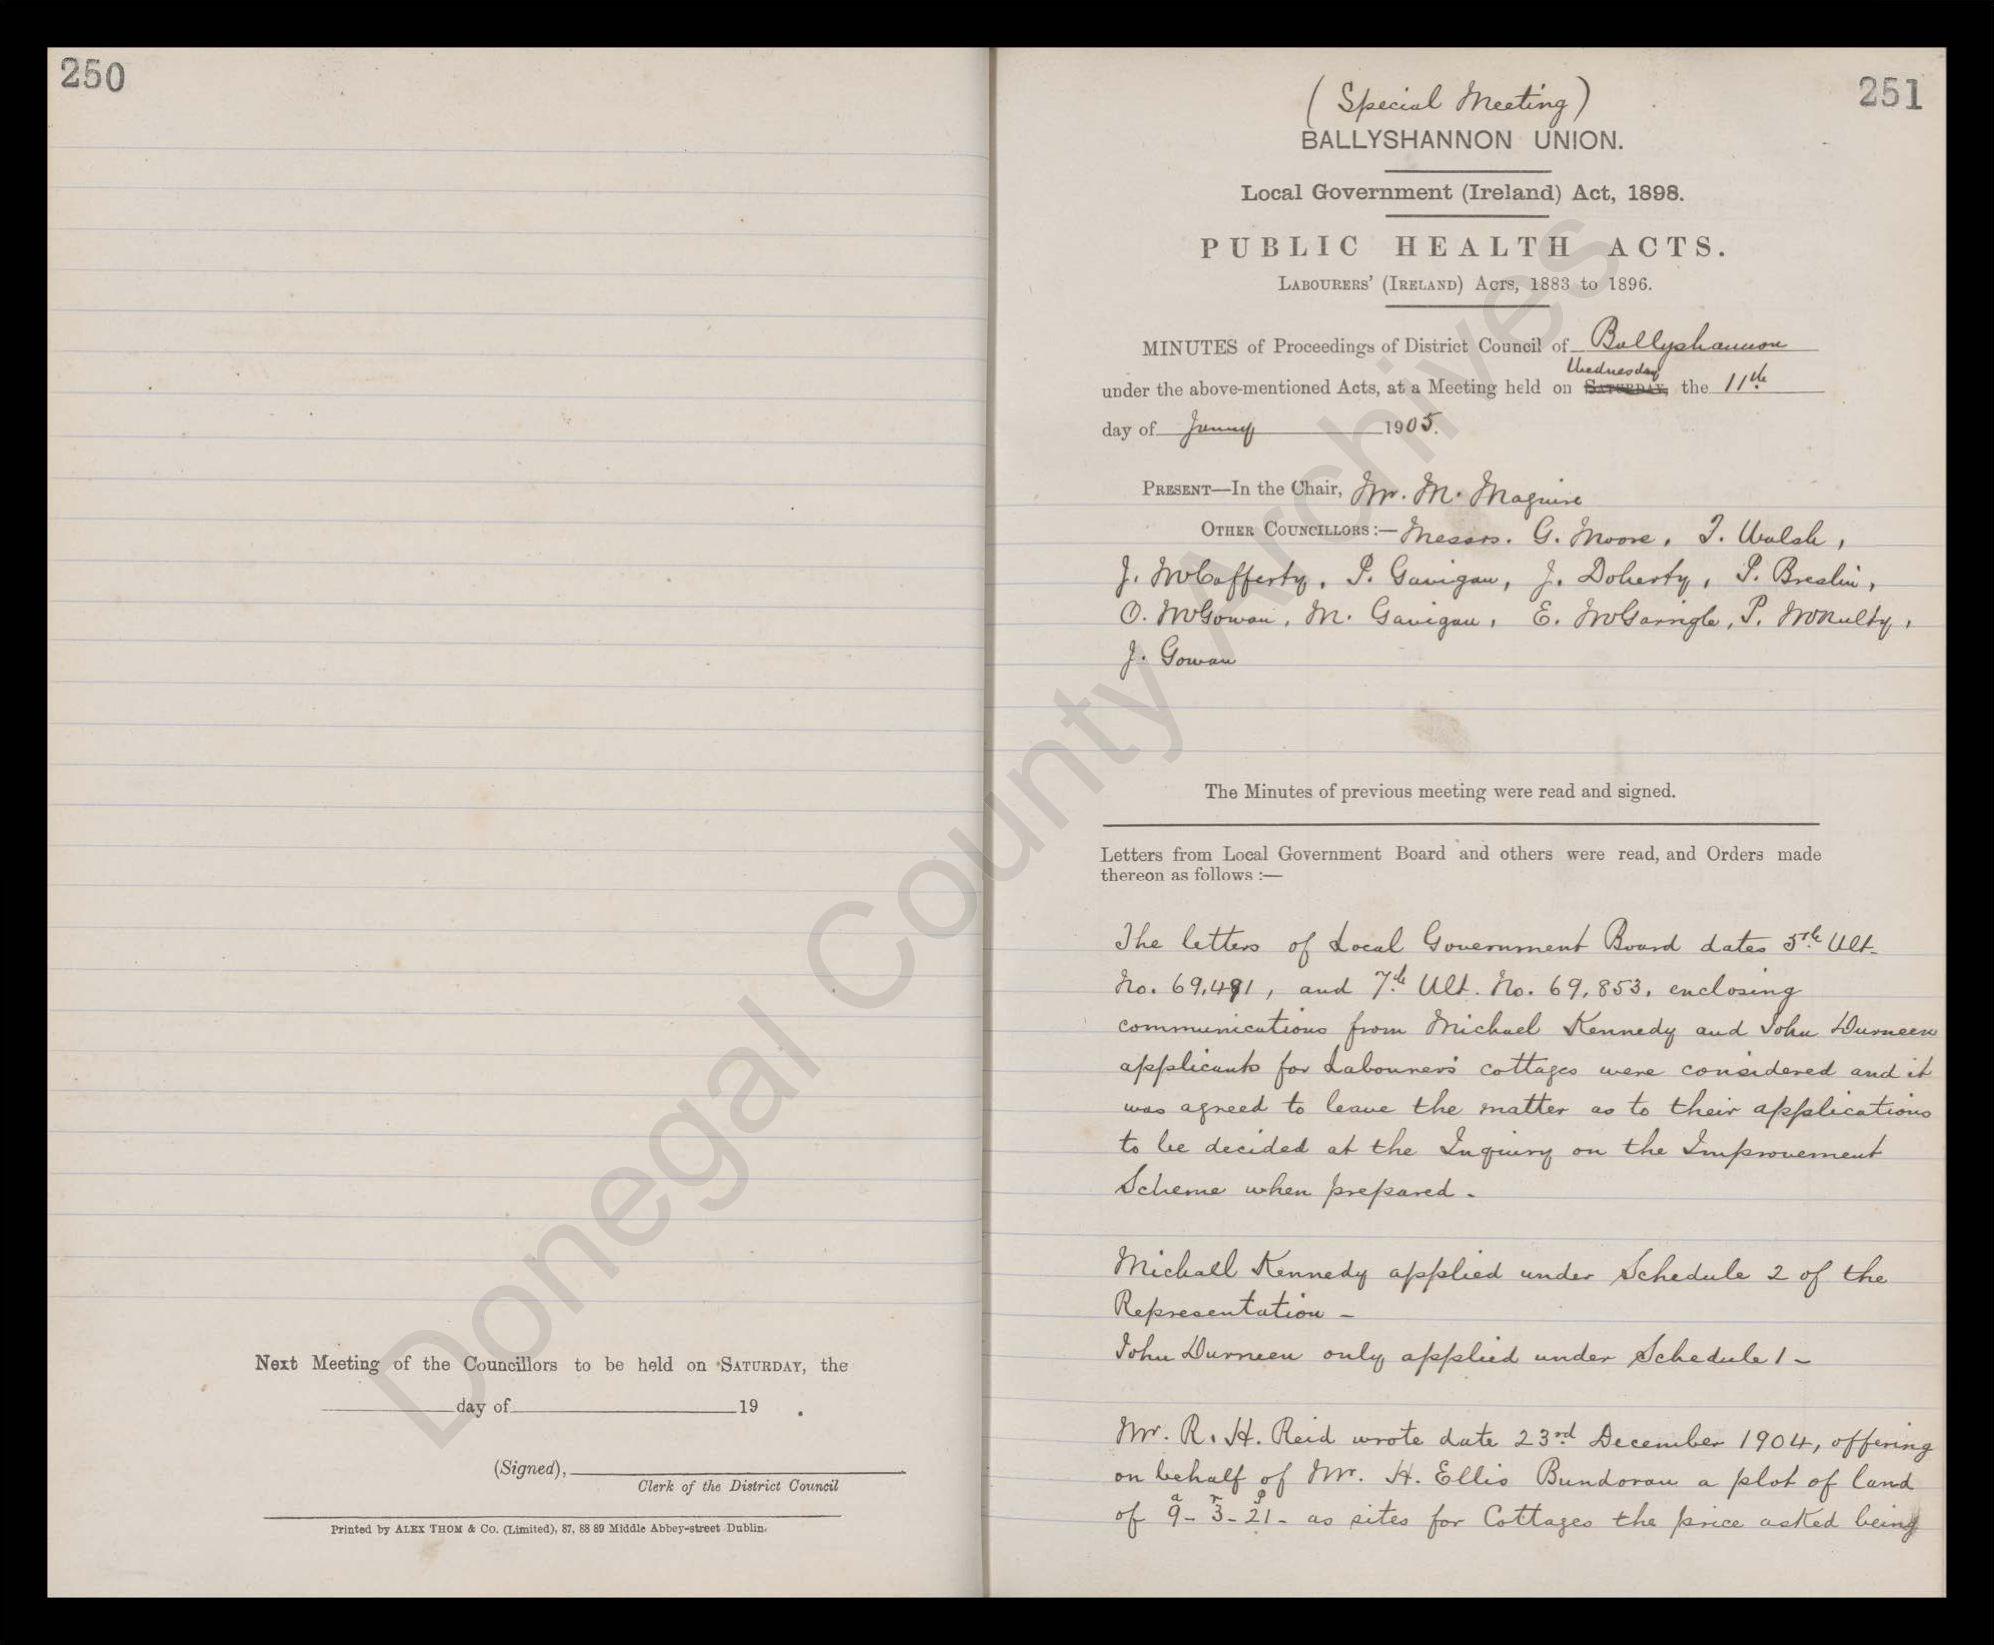 250
Next Meeting of the Councillors to be held on SATURDAY, the
day of 19 .
(Signed),
Clerk of the District Council
Printed by ALEX THOM & Co. (Limited), 87, 88 89 Middle Abbey-street Dublin.
251
(Special Meeting)
BALLYSHANNON UNION.
Local Government (Ireland) Act, 1898.
PUBLIC HEALTH ACTS.
LABOURERS' (IRELAND) ACTS, 1883 to 1896.
MINUTES of Proceedings of District Council of Ballyshannon
Wednesday
under the above-mentioned Acts, at a Meeting held on SATURDAY, the 11th
day of Janny 1905.
PRESENT—In the Chair, Mr. M. Maguire
OTHER COUNCILLORS:— Messrs. G. Moore, T. Walsh,
J. McCafferty, P. Gavigan, J. Doherty, P. Breslin,
O. McGowan, M. Gavigan, E. McGarrigle, P. McNulty,
J. Gowan
The Minutes of previous meeting were read and signed.
Letters from Local Government Board and others were read, and Orders made
thereon as follows :—
The letters of Local Government Board dates 5th Ult.
No. 69,491, and 7th Ult. No. 69,853, enclosing
communications from Michael Kennedy and John Durneen
applicants for Labourers' cottages were considered and it
was agreed to leave the matter as to their applications
to be decided at the Inquiry on the Improvement
Scheme when prepared -
Michall Kennedy applied under Schedule 2 of the
Representation -
John Durneen only applied under Schedule 1 -
Mr. R. H. Reid wrote date 23rd December 1904, offering
on behalf of Mr. H. Ellis Bundoran a plot of land
a r p
of 9 - 3 - 21 - as sites for Cottages the price asked being
Donegal County Archives